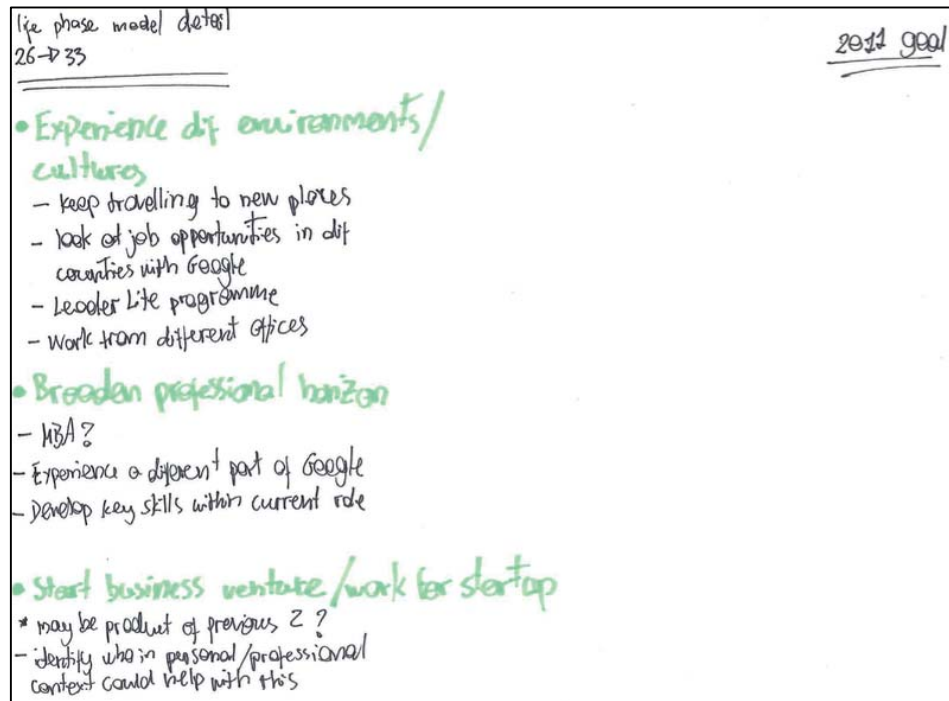 life phase model detail
26→33
2011 goal
• Experience dif environments/
cultures
- keep travelling to new places
- look at job opportunities in dif
countries with Google
- Leader Lite programme
- Work from different offices
• Broaden professional horizon
- MBA?
- Experience a diferent part of Google
- Develop key skills within current role
• Start business venture/work for startup
* may be product of previous 2?
- identify who in personal/professional
context could help with this